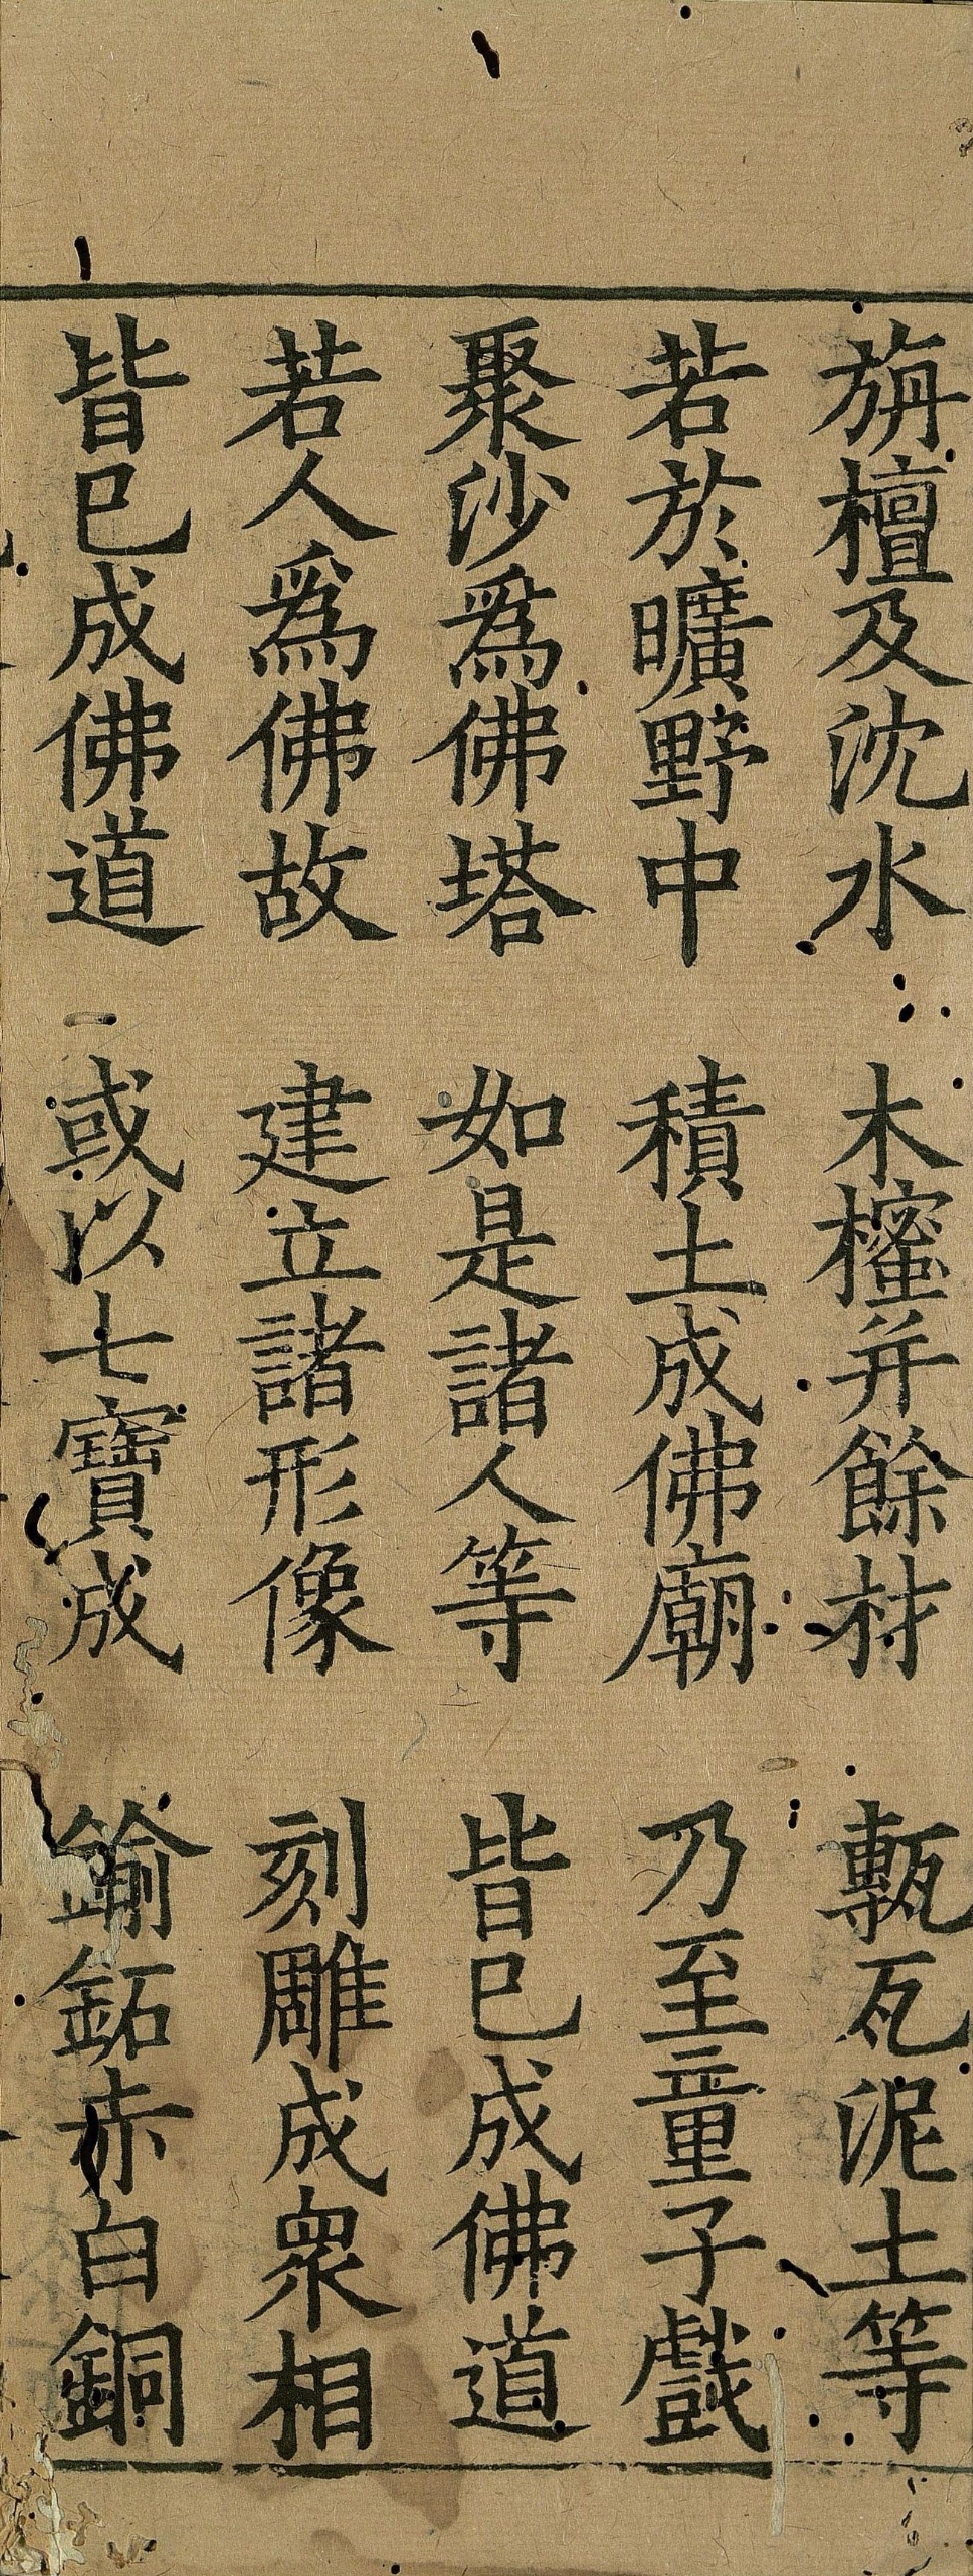 旃檀及沈水　木櫁并餘材　甎瓦泥土等
若於曠野中　積土成佛廟　乃至童子戲
聚沙爲佛塔　如是諸人等　皆已成佛道
若人爲佛故　建立諸形像　刻雕成衆相
皆已成佛道　或以七寶成　鍮鉐赤白銅